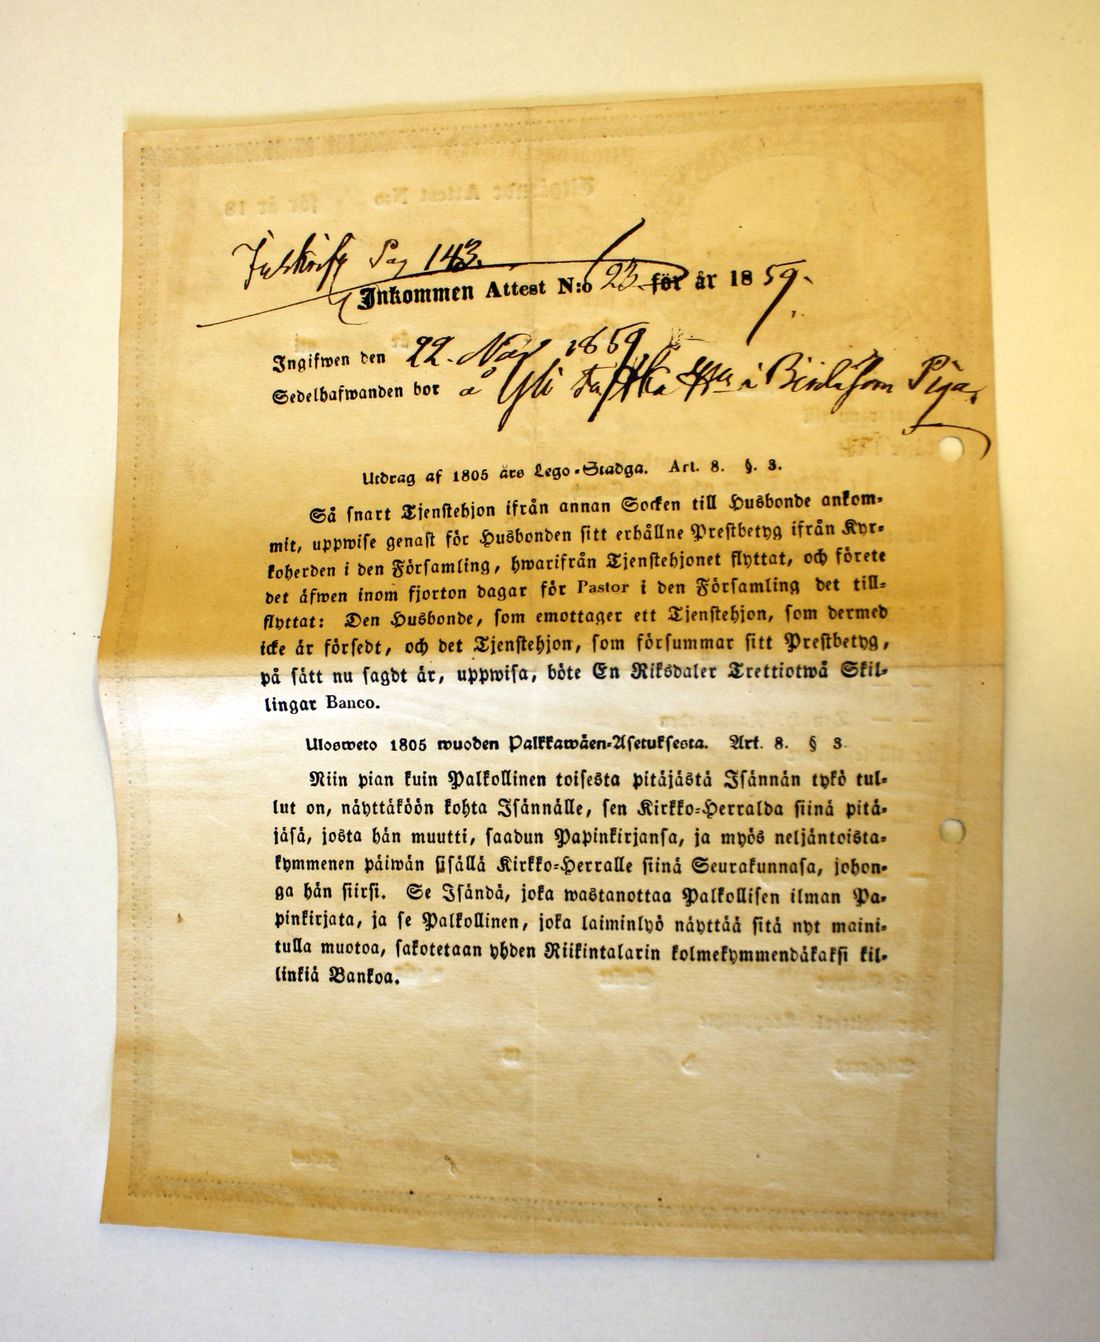 Inskrifv Pag 143.
Inkommen Attest N:o 23 för år 1859.
Ingifwen den 22. Nov 1859
Sedelhafwanden bor å Yli i Piga.
Utdrag af 1805 års Lego-Stadga. Art. 8. §. 3.
Så snart Tjenstehjon ifrån annan Socken till Husbonde ankom-
mit, uppwise genast för Husbonden sitt erhållne Prestbetyg ifrån Kyr-
koherden i den Församling, hwarifrån Tjenstehjonet flyttat, och förete
det äfwen inom fjorton dagar för Pastor i den Församling det till-
flyttat: Den Husbonde, som emottager ett Tjenstehjon, som dermed
icke är försedt, och det Tjenstehjon, som försummar sitt Prestbetyg,
på sätt nu sagdt är, uppwisa, böte En Riksdaler Trettiotwå Skil-
lingar Banco.
Ulosweto 1805 wuoden Palkkawäen-Asetuksesta. Art. 8. § 3
Niin pian kuin Palkollinen toisesta pitäjästä Isännän tykö tul-
lut on, näyttäköön kohta Isännälle, sen Kirkko-Herralda siinä pitä-
jäsä, josta hän muutti, saadun Papinkirjansa, ja myös neljäntoista-
kymmenen päiwän sisällä Kirkko-Herralle siinä Seurakunnasa, johon-
ga hän siirsi. Se Isändä, joka wastanottaa Palkollisen ilman Pa-
pinkirjata, ja se Palkollinen, joka laiminlyö näyttää sitä nyt maini-
tulla muotoa, sakotetaan yhden Riikintalarin kolmekymmendäkaksi kil-
linkiä Bankoa.